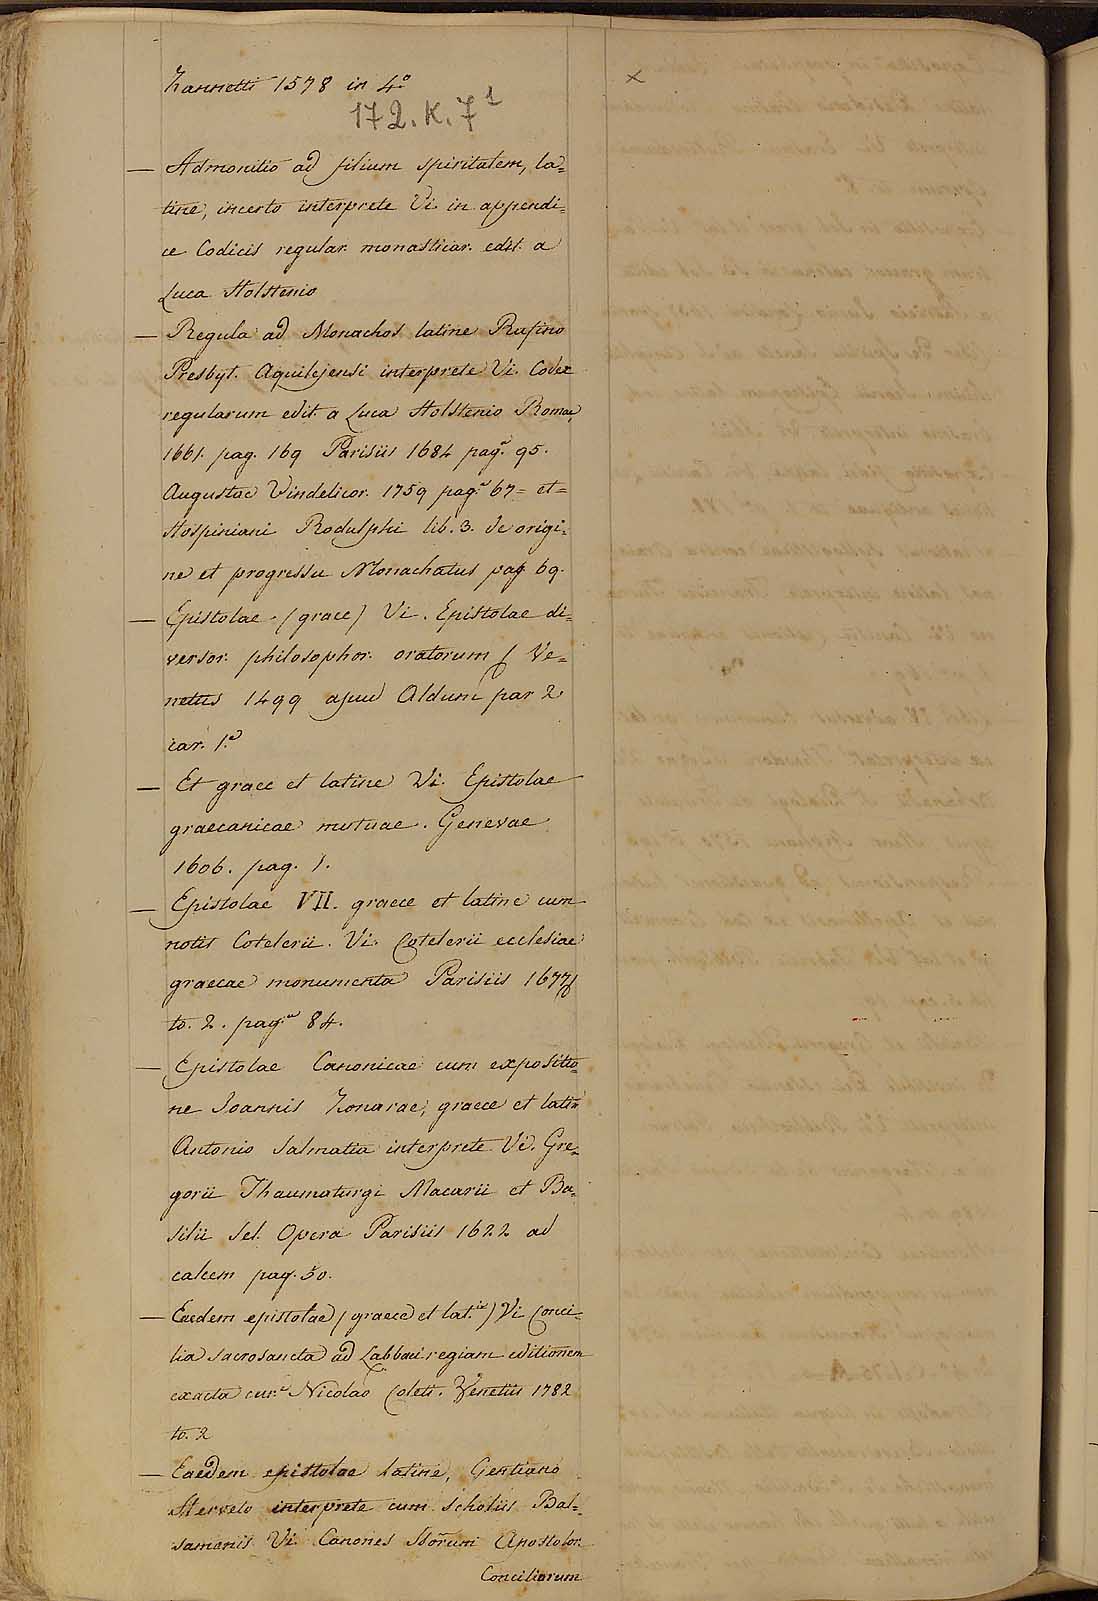 Zannetti 1578 in 4.º
172. K. 7¹
— Admonitio ad filium spiritalem, la=
tine, incerto interprete Vi. in appendi=
ce Codicis regular. monasticar. edit. a
Luca Holstenio
— Regula ad Monachos latine Rufino
Presbyt. Aquilejensi interprete Vi. Codex
regularum edit. a Luca Holstenio Romae,
1661. pag. 169 Parisiis 1684 pag.ª 95.
Augustae Vindelicor. 1759 pag.ª 67= et=
Hospiniani Rodulphi lib. 3. de origi=
ne et progressu Monachatus pag 69.
— Epistolae. (graece) Vi. Epistolae di=
versor. philosophor. oratorum & Ve=
netiis 1499 apud Aldum par 2
car. 1.ª
— Et graece et latine Vi. Epistolae
graecanicae mutuae. Genevae
1606. pag. 1.
— Epistolae VII. graece et latine cum
notis Cotelerii. Vi. Cotelerii ecclesiae
graecae monumenta Parisiis 1677
to. 2. pag.ª 84.
— Epistolae Canonicae cum expositio=
ne Joannis Zonarae, graece et latin
Antonio Salmatia interprete Vi. Gre=
gorii Thaumaturgi Macarii et Ba=
silii Sel. Opera Parisiis 1622 ad
calcem pag. 30.
— Eaedem epistolae (graece et lat.ne) Vi Conci=
lia sacrosancta ad Labbaei regiam editionem
exacta cur.e Nicolao Coleti. Venetiis 1782
to. 2
— Eaedem epistolae latine, Gentiano
Herveto interprete cum scholiis Bal=
samonis Vi. Canones SSorum Apostolor.
Conciliorum